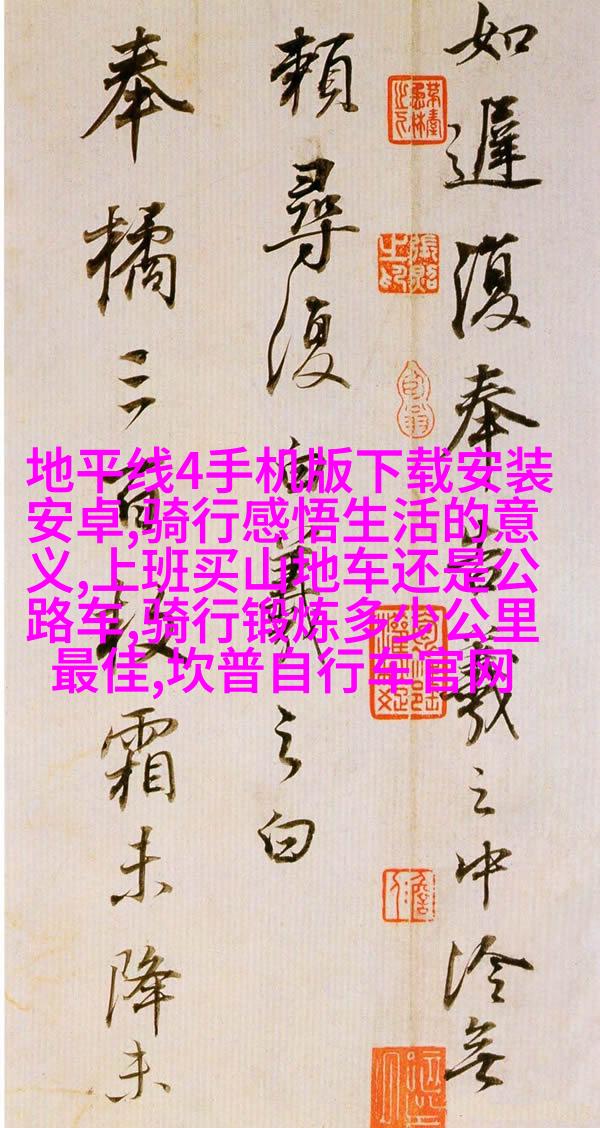 如遲復奉告羲之中冷無
賴尋復白羲之白
奉橘三百枚霜未降未
地平线4手机版下载安装
安卓,骑行感悟生活的意
义,上班买山地车还是公
路车,骑行锻炼多少公里
最佳,坎普自行车官网